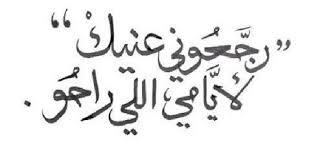 ”رجَّعُوني عنيكْ“
لأيَّامي اللي راحُو.